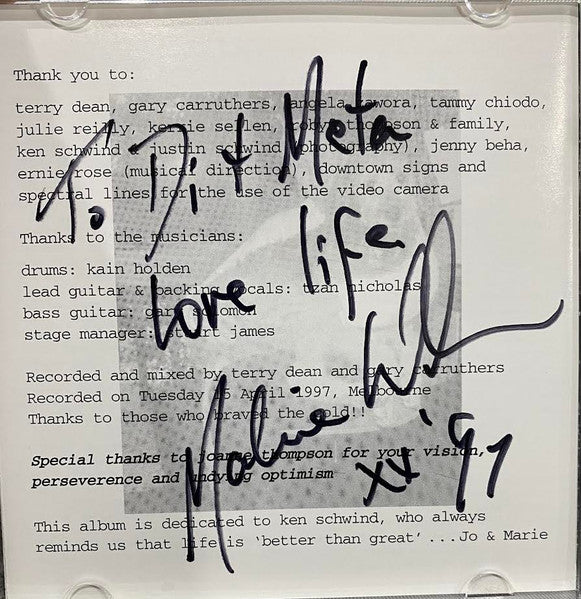 Thank you to:
terry dean, gary carruthers, angela zawora, tammy chiodo,
julie reilly, kerrie sellen, robyn thompson & family,
ken schwind & justin schwind (photography), jenny beha,
ernie rose (musical direction), downtown signs and
spectral lines for the use of the video camera
Thanks to the musicians:
drums: kain holden
lead guitar & backing vocals: tzan nicholas
bass guitar: gary solomon
stage manager: stuart james
Recorded and mixed by terry dean and gary carruthers
Recorded on Tuesday 15 April 1997, Melbourne
Thanks to those who braved the cold!!
Special thanks to joanne thompson for your vision,
perseverence and undying optimism
This album is dedicated to ken schwind, who always
reminds us that life is 'better than great' ...Jo & Marie
To Di + Meta
love life
xx '97